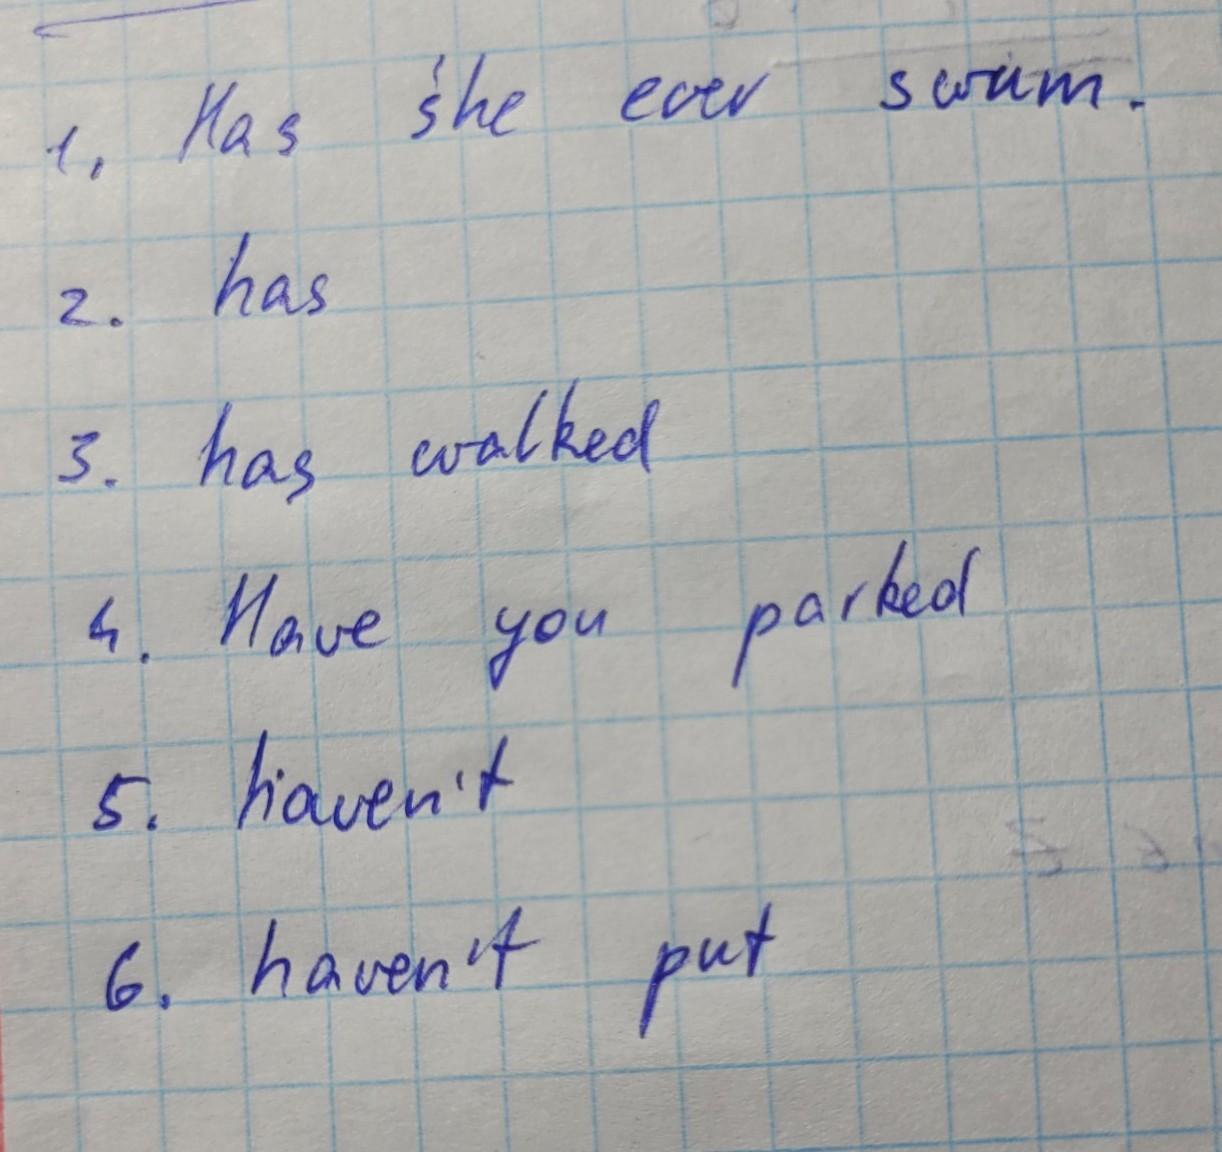 1. Has she ever swum.
2. has
3. has walked
4. Have you parked
5. haven't
6. haven't put